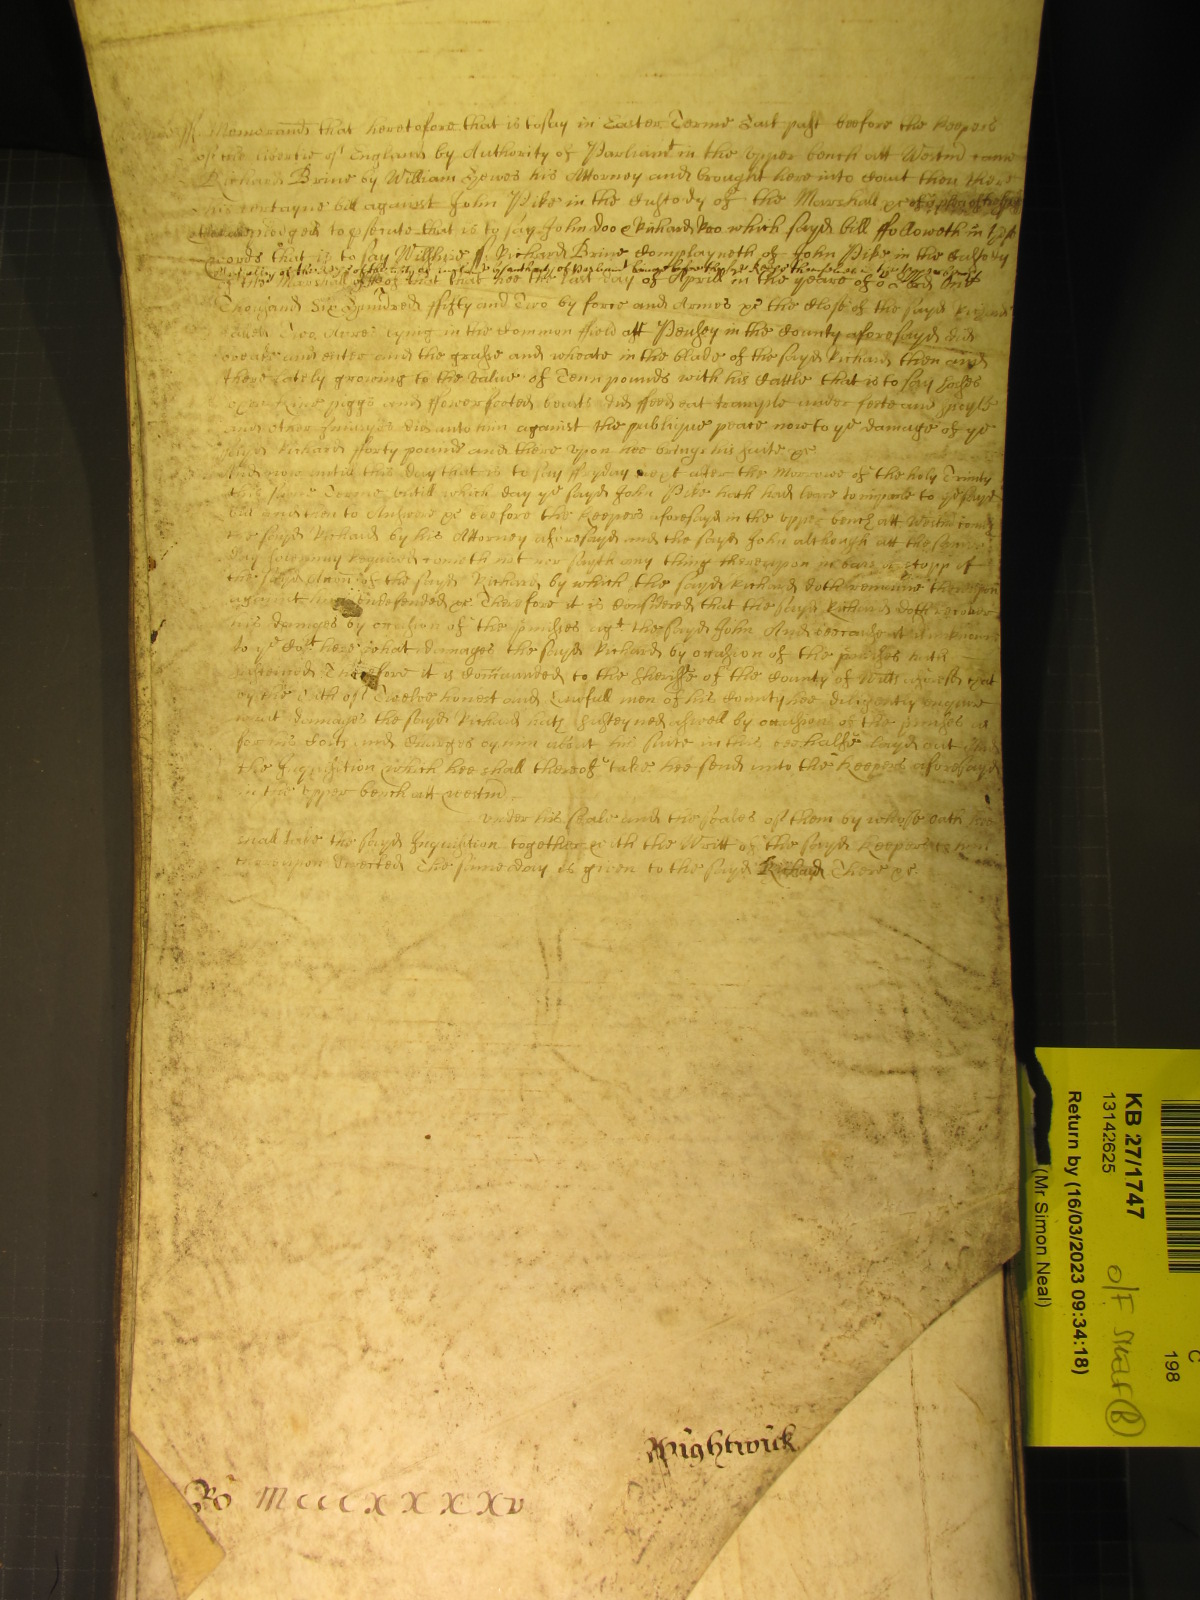 ss Memorand that heretofore that is to say in Easter Terme Last past beefore the Keepers
of the libertie of England by Authority of Parliamt in the upper bench att Westm came
Richard Brine by William Hewes his Attorney and brought here into Court then there
his certayne bill against John Pike in the Custody of the Marshall &c of a plea of trespas
pledges to prosecute that is to say John Doo & Richard Roo which sayd bill ffolloweth in these
words that is to say Wiltshire ss Richard Brine Complayneth of John Pike in the Custody
of the Marshall
for that hee the last day of Aprill in the yeare of o Lord One
Thousand Six Hundred ffifty and Two by force and Armes &c the Close of the sayd Richard
called Two Acres lying in the Common ffield att Pewsey in the County aforesayd did
breake and enter and the grasse and wheate in the blade of the sayd Richard then and
there lately growing to the value of Tenn pounds with his Cattle that is to say horses
oxen Kine piggs and ffowerfooted beasts did ffeed eat trample under feete and spoyle
and other Injuryes did unto him against the publique peace now to ye damage of ye
sayd Richard fforty pounds and there upon hee brings his suite &c
And now untill this day that is to say ffryday next after the Morrowe of the holy Trinity
this same Terme untill which day ye sayd John Pike hath had leave to imparle to ye sayd
bill and then to Answere &c beefore the Keepers aforesayd in the upper bench att Westm cometh
the sayd Richard by his Attorney aforesayd and the sayd John although att the same
day solemnly required cometh not nor sayth any thing thereupon in barr or stopp of
the sayd action of the sayd Richard by which the sayd Richard doth remaine thereupon
against him undefended &c Therefore it is Considered that the sayd Richard doth recover
his damages by occasion of the pmisses agt the sayd John And because it is unknown
to ye Cort here what damages the sayd Richard by occasion of the pmisses hath
susteined Therefore it is Comaunded to the Sheriffe of the County of Wilts aforesd that
by the Oath of Twelve honest and Lawfull men of his County hee diligently enquire
what damages the sayd Richard hath susteyned aswell by occasion of the pmisses as
for his Costs and Charges by him about his suite in this beehalfe layd out And
the Inquisition which hee shall thereof take hee send unto the Keepers aforesayd
in the upper bench att Westm
under his seale and the seales of them by whose oath hee
shall take the sayd Inquisition together with the Writt of the sayd Keepers to him
thereupon directed The same day is given to the sayd Richard There &c
Wightwick
Ro MCCCXXXXV
KB 27/1747
13142625
Return by (16/03/2023 09:34:18)
(Mr Simon Neal)
C
198